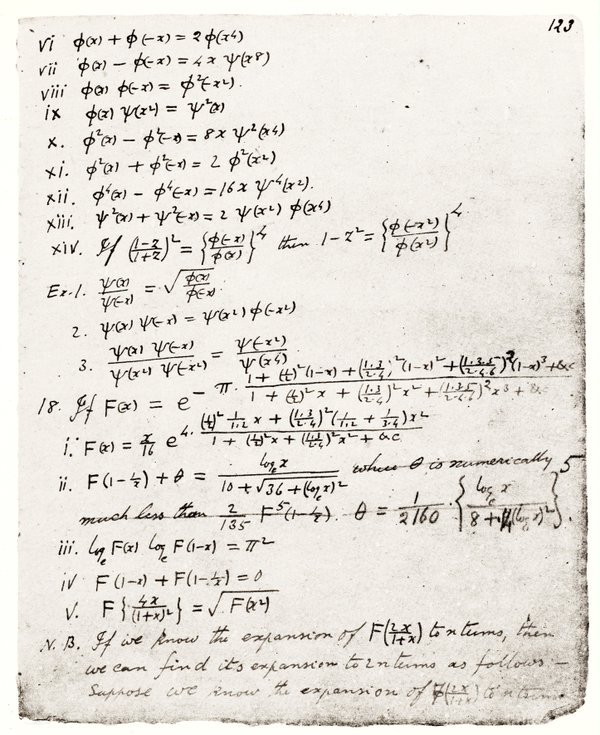 123
vi φ(x) + φ(-x) = 2φ(x4)
vii φ(x) - φ(-x) = 4x ψ(x8)
viii φ(x) φ(-x) = φ²(-x²).
ix φ(x) ψ(x²) = ψ²(x)
x. φ²(x) - φ²(-x) = 8x ψ²(x4)
xi. φ²(x) + φ²(-x) = 2 φ²(x²)
xii. φ⁴(x) - φ⁴(-x) = 16x ψ⁴(x²).
xiii. ψ²(x) + ψ²(-x) = 2 ψ(x²) φ(x4)
xiv. If ((1-z)/(1+z))² = {φ(-x)/φ(x)}⁴ then 1-z² = {φ(-x²)/φ(x²)}⁴
Ex. 1. ψ(x)/ψ(-x) = √(φ(x)/φ(-x))
2. ψ(x) ψ(-x) = ψ(x²) φ(-x²)
3. ψ(x) ψ(-x)/ψ(x²) ψ(-x²) = ψ(-x²)/ψ(x4)
18. If F(x) = e^{-π · (1 + (½)²(1-x) + (1·3/2·4)²(1-x)² + (1·3·5/2·4·6)²(1-x)³ + &c)/(1 + (½)²x + (1·3/2·4)²x² + (1·3·5/2·4·6)²x³ + &c)}
i. F(x) = x/16 e^{4 · ((½)² 1/1·2 x + (1·3/2·4)²(1/1·2 + 1/3·4)x²)/(1 + (½)²x + (1·3/2·4)²x² + &c)}
ii. F(1-1/x) + θ = log_e x/(10 + √(36 + (log_e x)²)) where θ is numerically
much less than 2/135 F⁵(1-1/x). θ = 1/2160 · {log_e x/(8 + (log x)²)}⁵.
iii. log_e F(x) log_e F(1-x) = π²
iv F(1-x) + F(1-1/x) = 0
v. F{4x/(1+x)²} = √F(x²)
N.B. If we know the expansion of F(2x/(1+x)) to n terms, then
we can find its expansion to 2n terms as follows –
Suppose we know the expansion of F(2x/(1+x)) to n terms